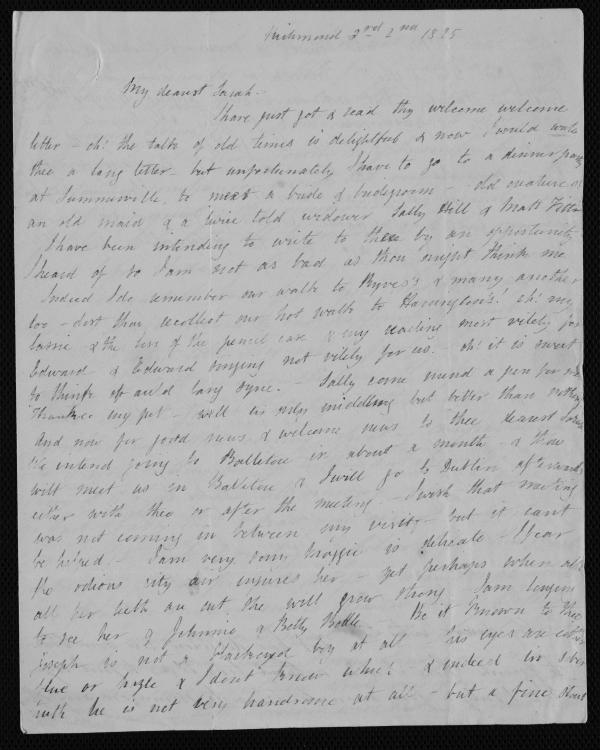 Richmond 2nd 1825
My dearest Sarah -
I have just got & read thy welcome welcome
letter - oh! the talk of old times is delightful & now I would write
thee a long letter - but unfortunately I have to go to a dinner party
at Summerville, to meet a bride & bridegroom - old
an old maid & a twice told widower Sally Hill & Matt
I have been intending to write to thee by an opportunity
I heard of so I am not as bad as thou might think me
Indeed I do remember our walk to & many another
too - dost thou recollect our hot walk to ! oh! my
& the loss of the pencil case & my reading most vilely for
Edward & Edward singing not vilely for us - oh! it is sweet
to think of auld lang syne. - Sally come mend a pen for me
Thankee my pet - well is middling but better than nothing
And now for good news & welcome news to thee dearest Sarah
We intend going to Ballitore in about a month - & thou
wilt meet us in Ballitore & I will go to Dublin afterwards
either with thee or after the meeting - I wish that meeting
was not coming in between my visits - but it cant
be helped. - I am very sorry is delicate - I fear
the odious city air injures her - yet perhaps when
all her teeth are out she will grow strong I am longing
to see her & Johnnie & Betty - Be it known to thee
Joseph is not a blackeyed boy at all his eyes are either
blue or hazle & I dont know which - & indeed in
truth he is not very handsome at all - but a fine stout